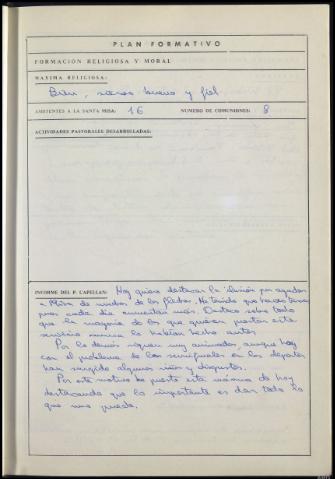 PLAN FORMATIVO
FORMACIÓN RELIGIOSA Y MORAL
MAXIMA RELIGIOSA:
Bien, siervo bueno y fiel.
ASISTENTES A LA SANTA MISA: 16 NUMERO DE COMUNIONES: 8
ACTIVIDADES PASTORALES DESARROLLADAS:
INFORME DEL P. CAPELLAN: Hoy quiero destacar la ilusión por ayudar
a Misa de muchos de los flechas. He tenido que hacer
pues cada día aumentan más. Destaco sobre todo
que la mayoría de los que quieren prestar este
servicio nunca lo habían hecho antes.
Por lo demás siguen muy animados, aunque hoy
con el problema de las semifinales en los deportes
han surgido algunos niños y disgustos.
Por este motivo he puesto esta máxima de hoy
destacando que lo importante es dar todo lo
que uno puede.